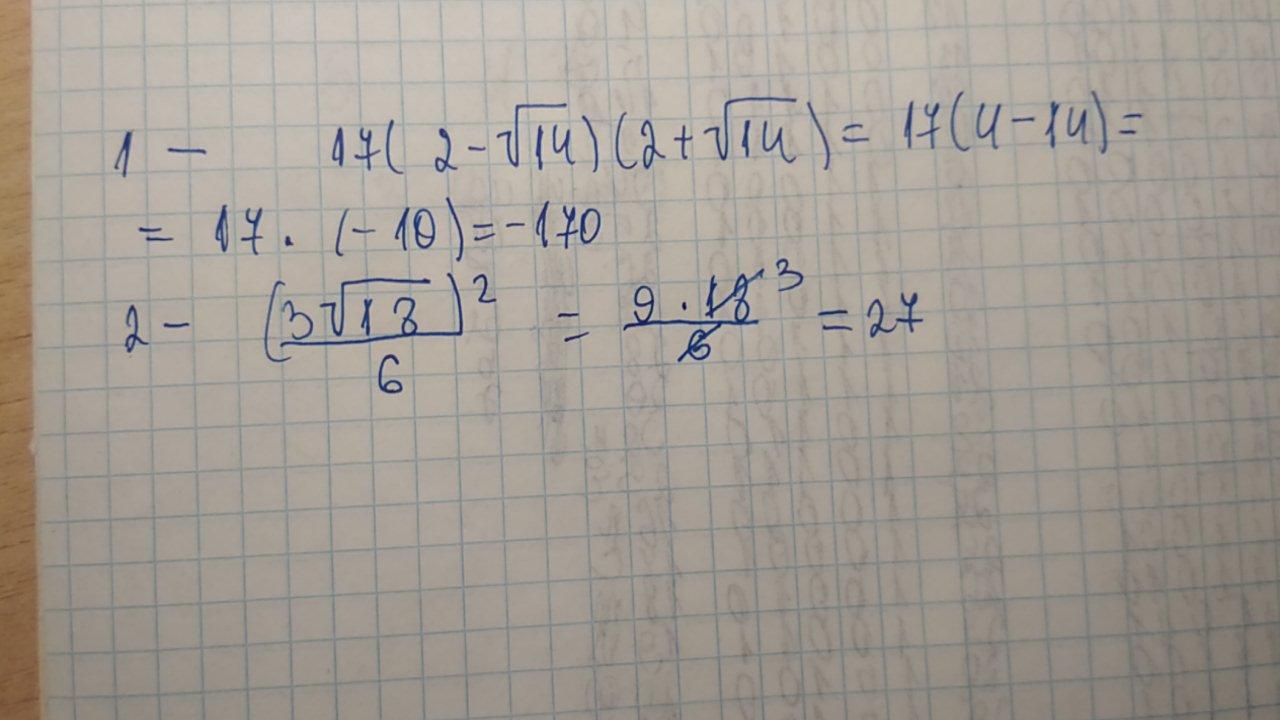 1 - 17(2-√14)(2+√14)= 17(4-14)=
= 17 . (-10)=-170
2 - (3√18)²/6 = 9 . 18 3/6 = 27